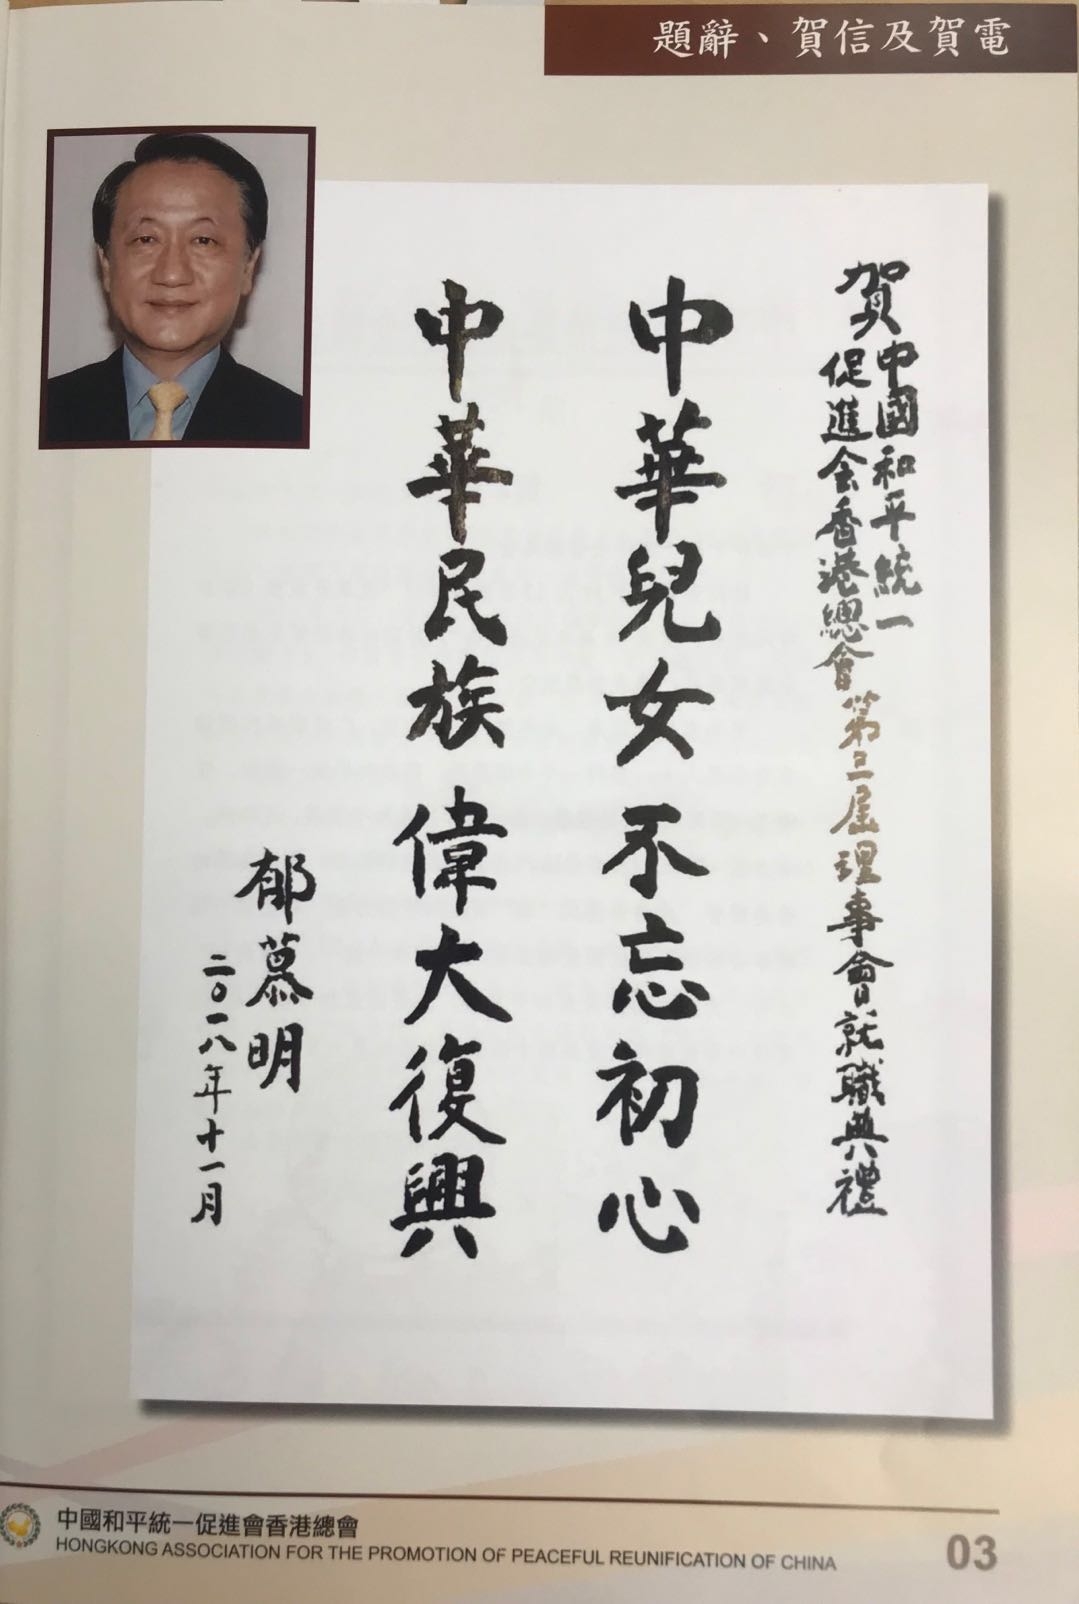 題辭、賀信及賀電
賀中國和平統一
促進会香港總會第三届理事會就職典禮
中華兒女不忘初心
中華民族偉大復興
郁慕明
二〇一八年十一月
中國和平統一促進會香港總會
HONGKONG ASSOCIATION FOR THE PROMOTION OF PEACEFUL REUNIFICATION OF CHINA
03